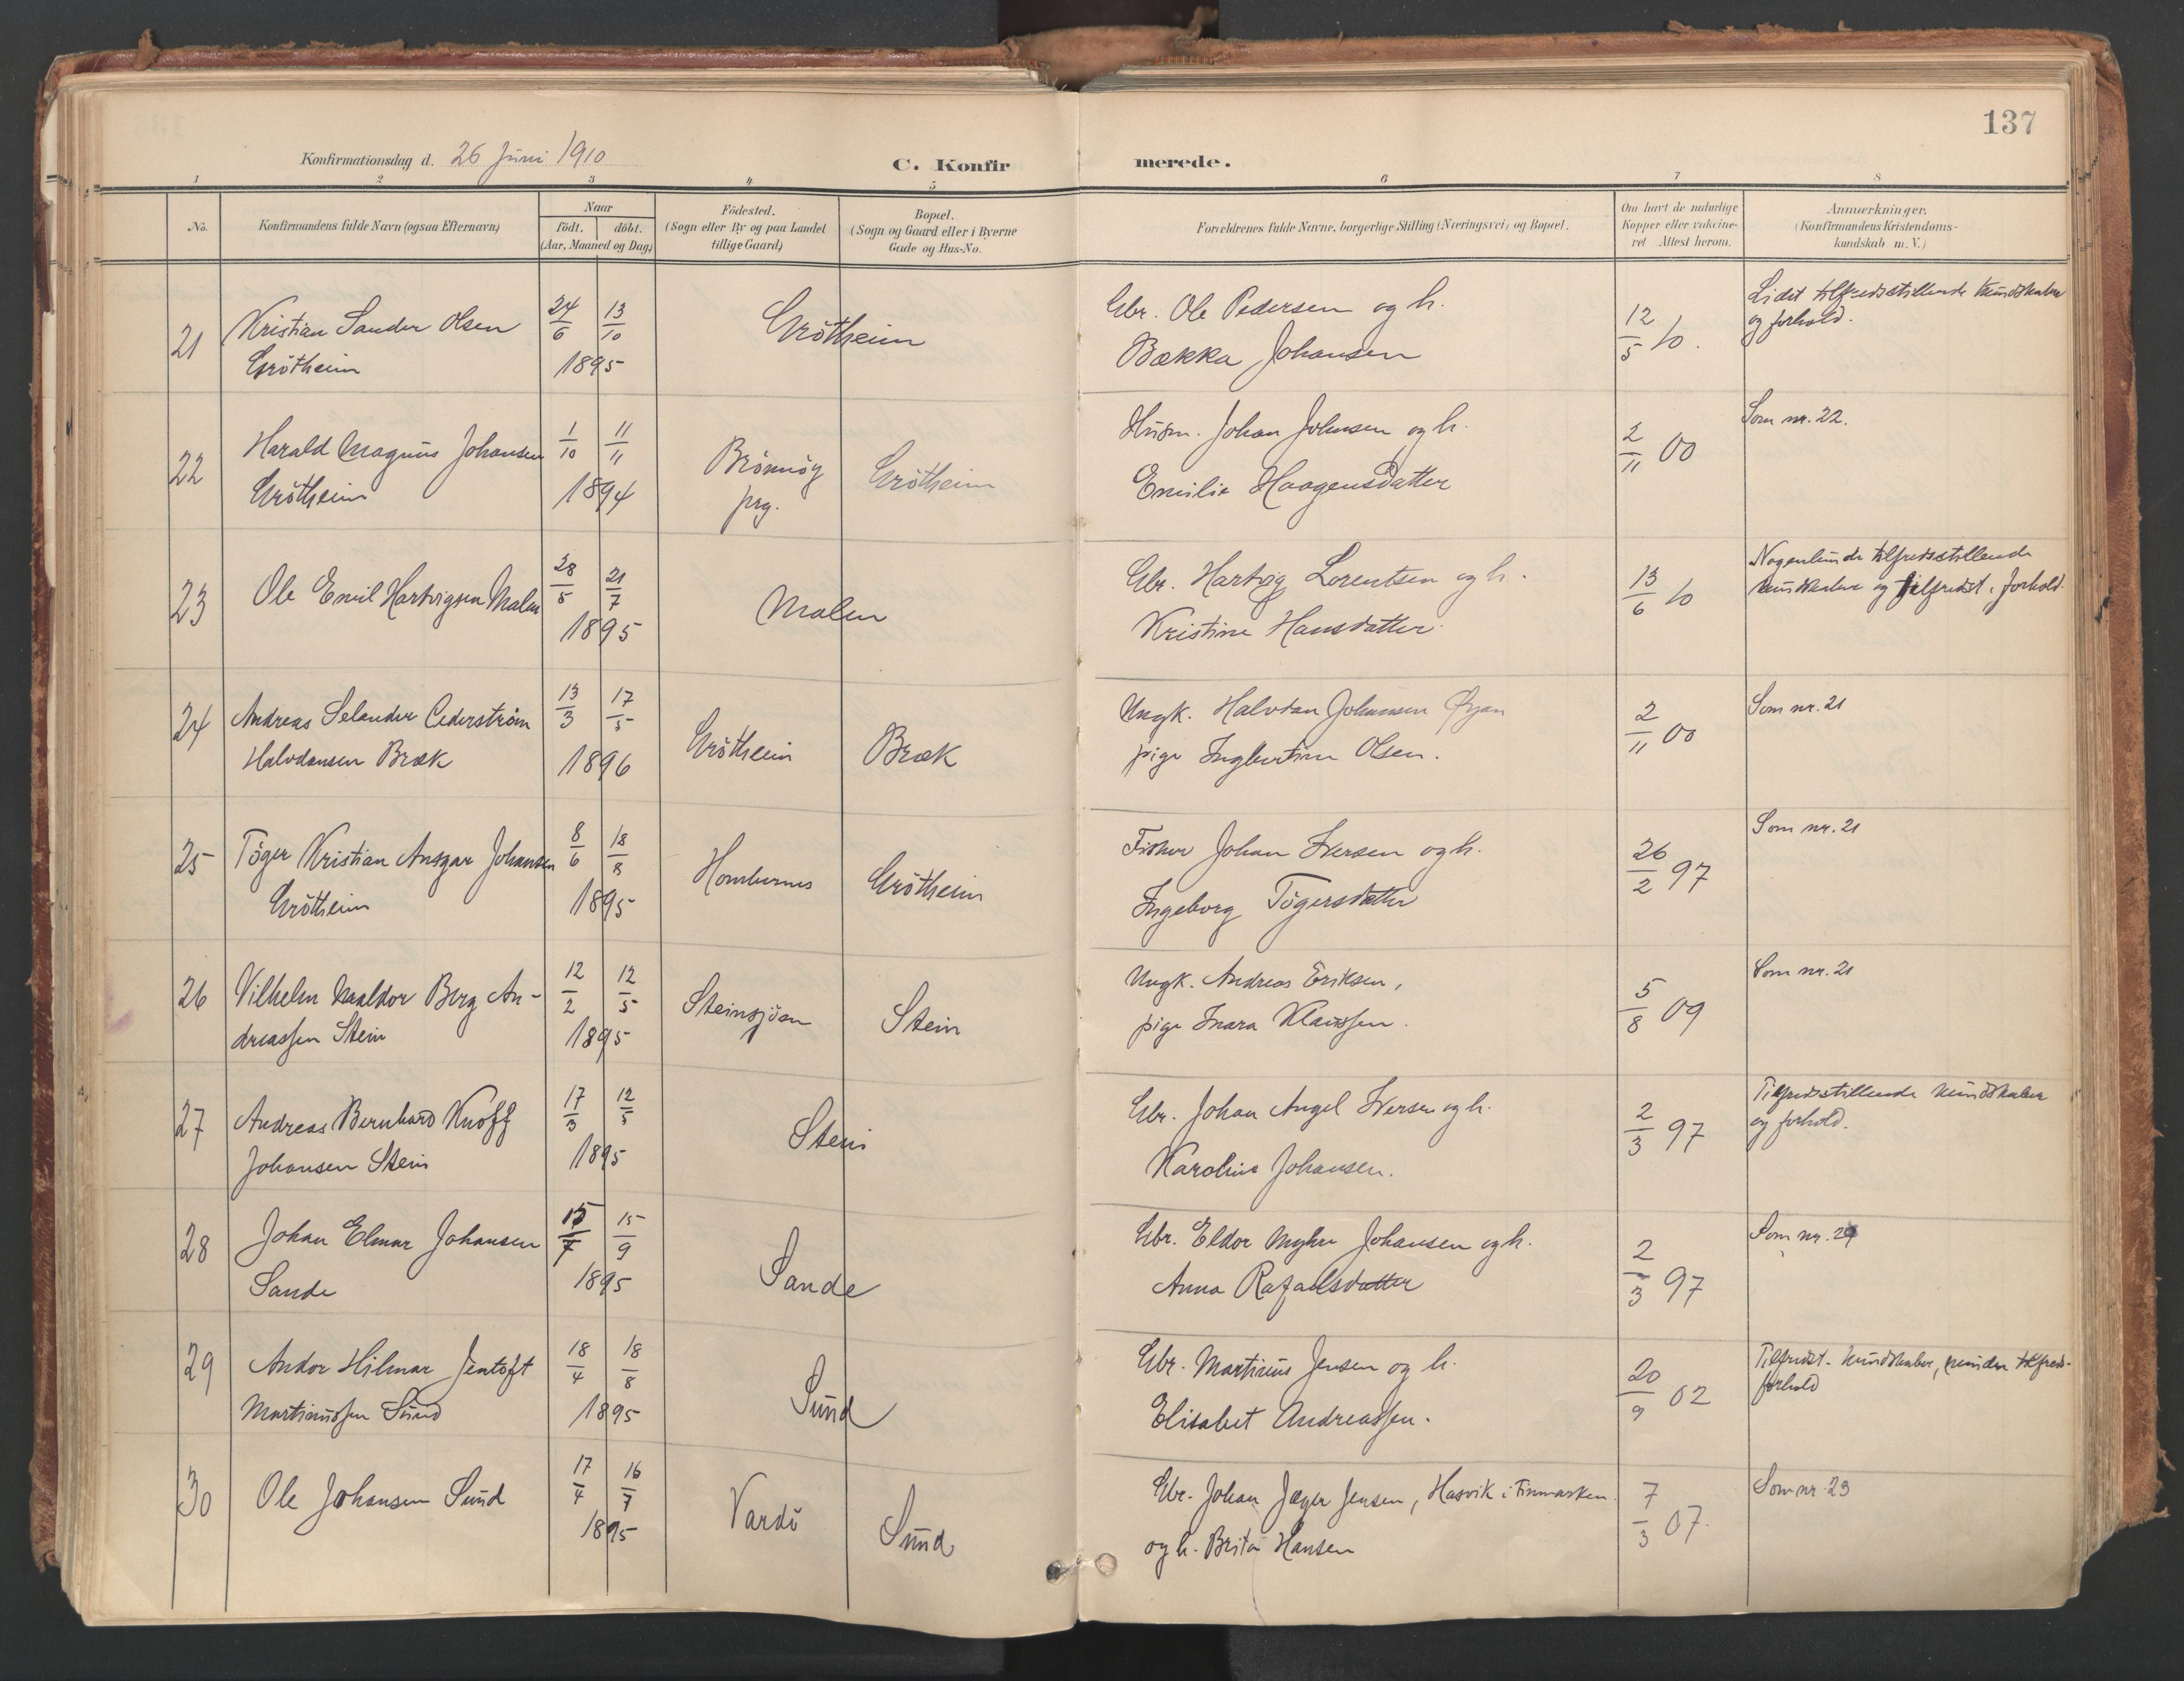 137
Konfirmationsdag d. 26 Juni 1910
C. Konfirmerede.
1 2 3 4 5 6 7 8
No. Konfirmandens fulde Navn (ogsaa Efternavn) Naar Födested. Bopæl. Forældrenes fulde Navne, borgerlige Stilling (Næringsvei) og Bopæl. Om havt de naturlige Anmærkninger.
födt. döbt. (Sogn eller By og paa Landet (Sogn og Gaard eller i Byerne Kopper eller vakcine- (Konfirmandens Kristendoms-
(Aar, Maaned og Dag) tillige Gaard) Gade og Hus-No. ret Attest herom. kundskab m. V.)
21 Kristian Sander Olsen 24/6 13/10 Grötheim Gbr. Ole Pedersen og h. 12/5 10. Lidet tilfredsstillende kundskaber
Grötheim 1895 Bækka Johansen og forhold.
22 Harald Magnus Johansen 1/10 11/11 Brönnöy Grötheim Husm. Johan Johnsen og h. 2/11 00 Som nr. 22.
Grötheim 1894 prg. Emilie Haagensdatter
23 Ole Emil Hartvigsen Malen 28/5 21/7 Malen Gbr. Hartvig Lorentsen og h. 13/6 10 Nogenlunde tilfredsstillende
1895 Kristine Hansdatter kundskaber og tilfredst. forhold.
24 Andreas Selander Cederström 13/3 17/5 Grötheim Bræk Ungk. Halvdan Johansen Øyan 2/11 00 Som nr. 21
Halvdansen Bræk 1896 pige Ingbertine Olsen.
25 Töger Kristian Ansgar Johansen 8/6 18/8 Grötheim Fisker Johan Iversen og h. 26/2 97 Som nr. 21
Grötheim 1895 Ingeborg Tögersdatter
26 Vilhelm Berg An- 12/2 12/5 Steinsjöen Stein Ungk. Andreas Eriksen, 5/8 09 Som nr. 21
dreassen Stein 1895 pige Inara Klaussen.
27 Andreas Bernhard Knoff 17/3 12/5 Stein Gbr. Johan Angel Iversen og h. 2/3 97 Tilfredsstillende kundskaber
Johansen Stein 1895 Karoline Johansen. og forhold.
28 Johan Elmar Johansen 15/7 15/9 Sande Gbr. Eldor Myhre Johansen og h. 2/3 97 Som nr.
Sande 1895 Anna Rafaelsdatter
29 Andor Hilmar Jentoft 18/4 18/8 Sund Gbr. Martinus Jensen og h. 20/9 02 Tilfredst. kundskaber, mindre tilfreds-
Martinussen Sund 1895 Elisabet Andreassen. forhold
30 Ole Johansen Sund 17/4 16/7 Vardö Sund Gbr. Johan Jæger Jensen, Hasvik i Finmarken. 7/3 07. Som nr. 23
1895 og h. Brita Hansen